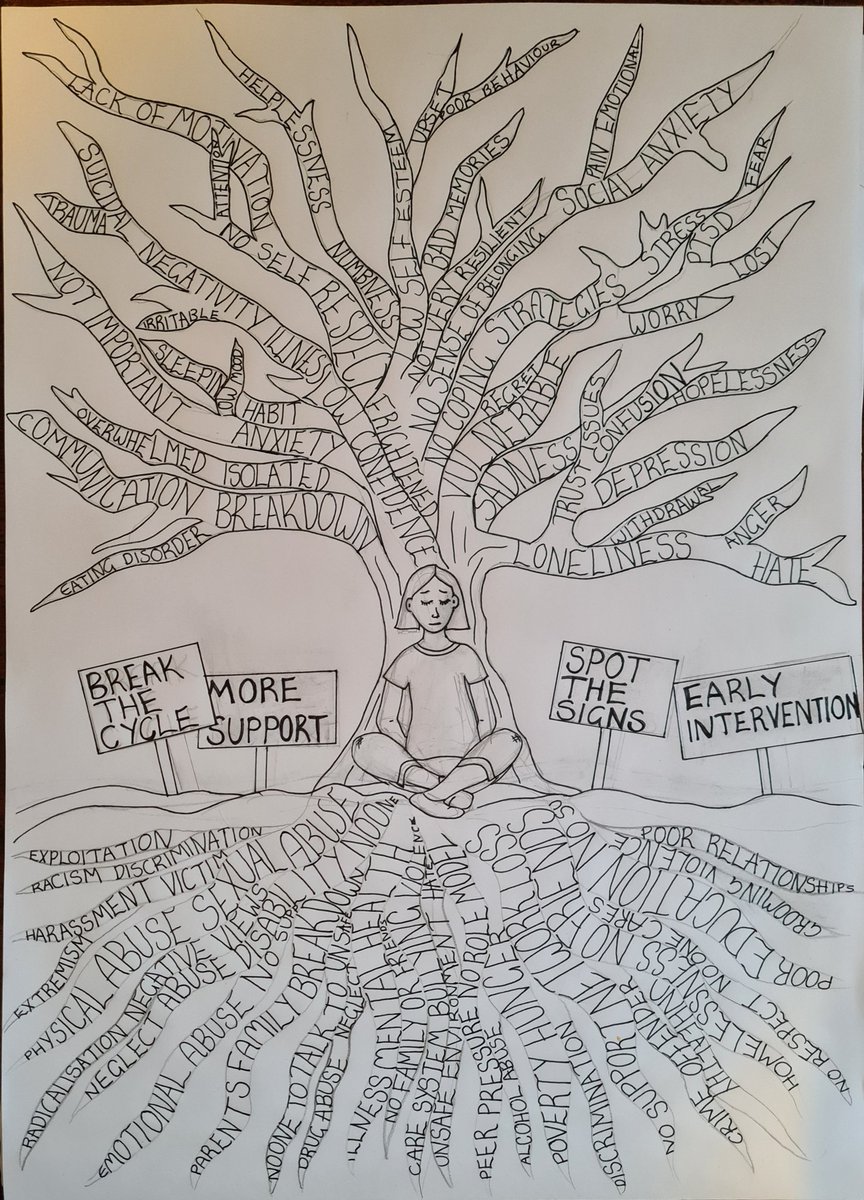 LACK OF MOTIVATION
ATTENTION
HELPLESSNESS
NUMBNESS
LOW SELF ESTEEM
UPSET
POOR BEHAVIOUR
BAD MEMORIES
PAIN EMOTIONAL
SOCIAL ANXIETY
NOT VERY RESILIENT
NO SENSE OF BELONGING
FEAR
PTSD
STRESS
LOST
NO COPING STRATEGIES
WORRY
SUICIDAL
TRAUMA
NEGATIVITY
ILLNESS
NO SELF RESPECT
NOT IMPORTANT
IRRITABLE
SLEEPING
LOW MOOD
HABIT
ANXIETY
LOW CONFIDENCE
FRIGHTENED
REGRET
VULNERABLE
SADNESS
TRUST ISSUES
CONFUSION
HOPELESSNESS
DEPRESSION
WITHDRAWAL
OVERWHELMED
ISOLATED
COMMUNICATION BREAKDOWN
EATING DISORDER
LONELINESS
ANGER
HATE
BREAK
THE
CYCLE
MORE
SUPPORT
SPOT
THE
SIGNS
EARLY
INTERVENTION
EXPLOITATION
RACISM DISCRIMINATION
HARASSMENT VICTIM
EXTREMISM
PHYSICAL ABUSE
SEXUAL ABUSE
RADICALISATION NEGATIVE VIEWS
NEGLECT ABUSE DISABILITY NOONE
EMOTIONAL ABUSE NO
PARENTS FAMILY BREAKDOWN
NOONE TO TALK TO UNSAFE
DRUG ABUSE NEGLECT
ILLNESS MENTAL HEALTH
NO FAMILY OR FRIENDS
CARE SYSTEM
BULLYING VIOLENCE
UNSAFE ENVIRONMENT
HATE
PEER PRESSURE
NO ROLE MODEL
ALCOHOL ABUSE
POVERTY HUNGER
DISCRIMINATION
NO SUPPORT NETWORK
LOSS
CRIME OFFENDER
UNHEALTHY
NO FRIENDS
HOMELESSNESS
NOONE CARES
NO RESPECT
POOR EDUCATION
GROOMING VIOLENCE
POOR RELATIONSHIPS